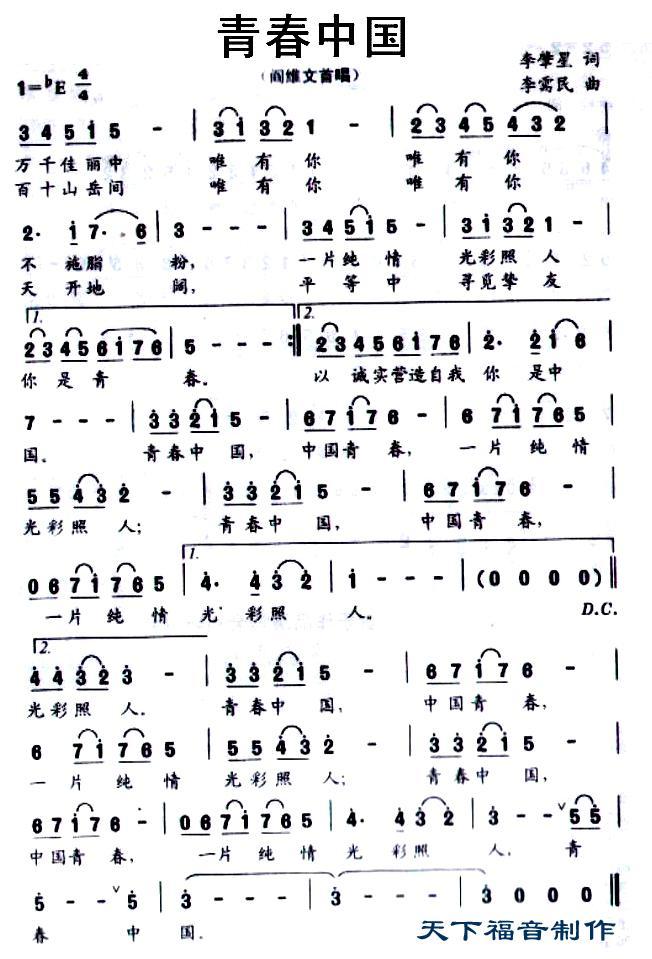 青春中国
(阎维文首唱)
李肇星 词
1=♭E 4/4
李需民 曲
3 4 5 1 5 - | 3 1 3 2 1 - | 2 3 4 5 4 3 2 |
万千佳丽中 唯有你 唯有你
百十山岳间 唯有你 唯有你
2· 1 7· 6 | 3 - - - | 3 4 5 1 5 - | 3 1 3 2 1 - |
不施脂 粉, 一片纯情 光彩照人
天开地 阔, 平等中 寻觅挚友
1. 2.
2 3 4 5 6 1 7 6 | 5 - - - :‖ 2 3 4 5 6 1 7 6 | 2· 2 1 6 |
你是青 春。 以诚实营造自我 你是中
7 - - - | 3 3 2 1 5 - | 6 7 1 7 6 - | 6 7 1 7 6 5 |
国。 青春中国, 中国青春, 一片纯情
5 5 4 3 2 - | 3 3 2 1 5 - | 6 7 1 7 6 - |
光彩照人; 青春中国, 中国青春,
1.
0 6 7 1 7 6 5 | 4· 4 3 2 | 1 - - - | (0 0 0 0) ‖
一片纯情 光 彩照 人。 D.C.
2.
4 4 3 2 3 - | 3 3 2 1 5 - | 6 7 1 7 6 - |
光彩照人。 青春中国, 中国青春,
6 7 1 7 6 5 | 5 5 4 3 2 - | 3 3 2 1 5 - |
一片纯情 光彩照人; 青春中国,
6 7 1 7 6 - | 0 6 7 1 7 6 5 | 4· 4 3 2 | 3 - - ∨ 5 5 |
中国青春, 一片纯情 光 彩照 人, 青
5 - - ∨ 5 | 3 - - - | 3 - - - | 3 0 0 0 ‖
春 中 国。
天下福音制作